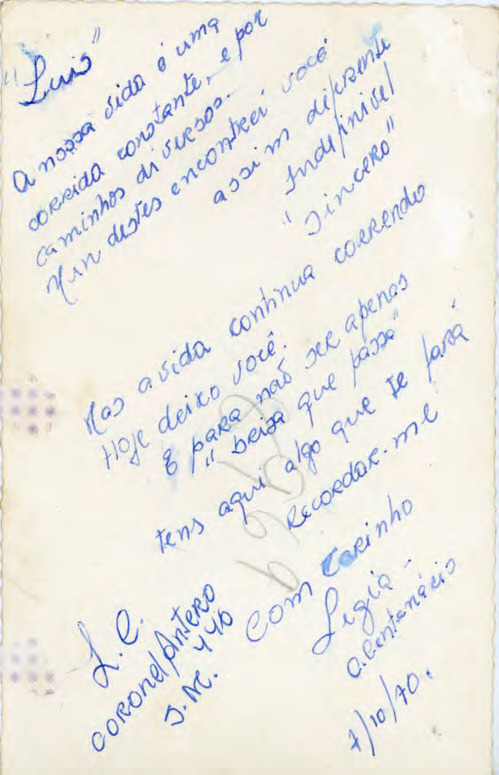 "Luis"
A nossa vida é uma
corrida constante, e por
caminhos diversos.
Num destes encontrei você
assim diferente
Indefinível
"Sincero"
Mas a vida continua correndo
Hoje deixo você.
E para não ser apenas
"brisa que passa"
tens aqui algo que te fará
Recordar-me
Com Carinho
Ligia -
O. Centenário
7/10/70.
L.C.
Coronel Antero
446